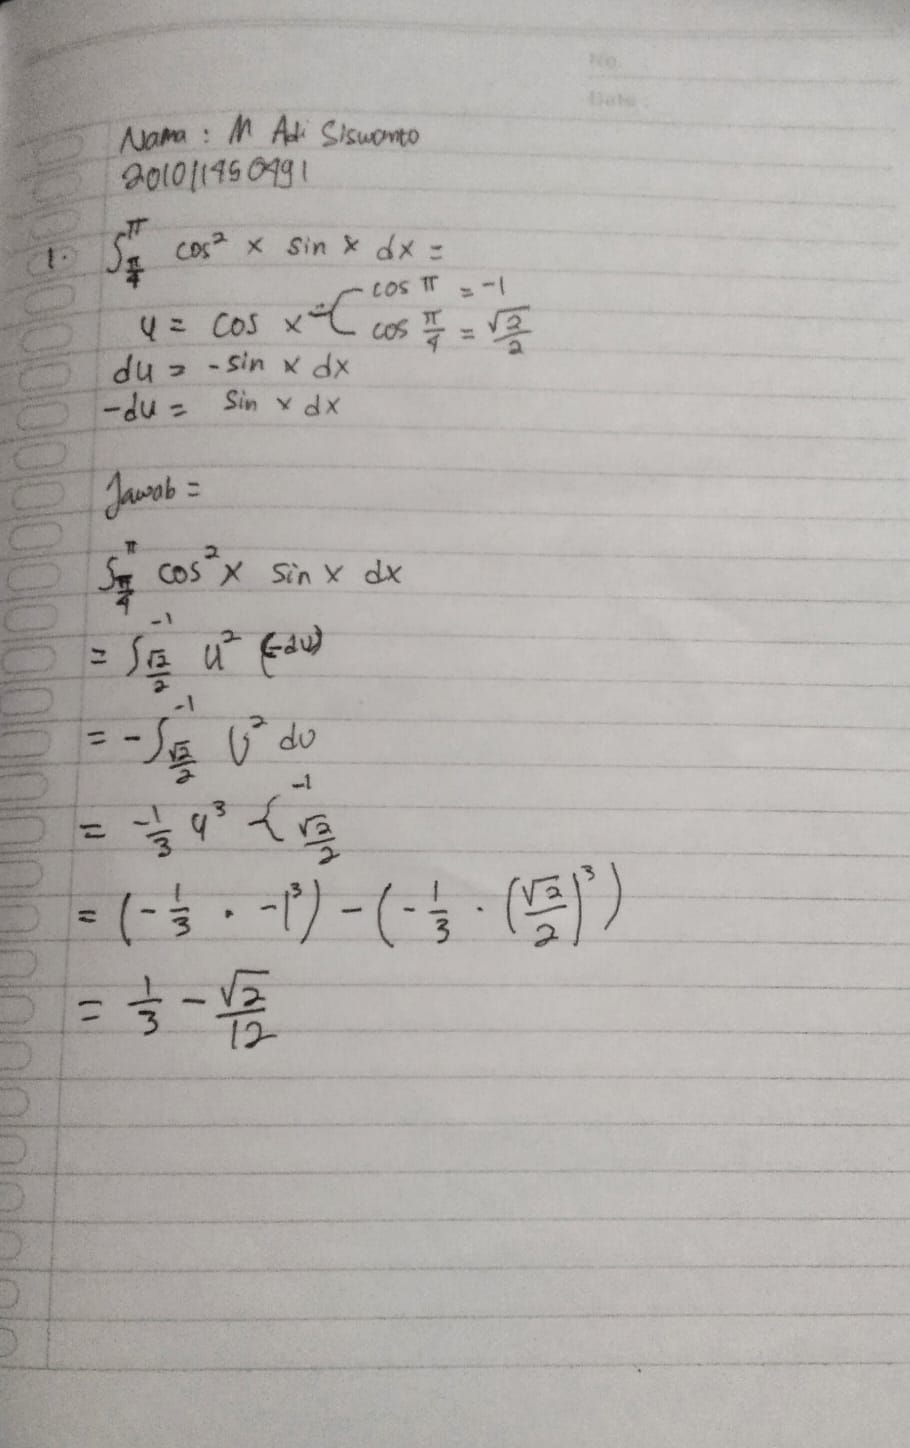 No. :
Date :
Nama : M Adi Siswanto
201011450491
1. ∫_{π/4}^{π} cos² x sin x dx =
u = cos x = { cos π = -1
cos π/4 = √2/2
du = -sin x dx
-du = sin x dx
Jawab =
∫_{π/4}^{π} cos² x sin x dx
= ∫_{√2/2}^{-1} u² (-du)
= -∫_{√2/2}^{-1} u² du
= -1/3 u³ {_{√2/2}^{-1}
= (-1/3 . -1³) - (-1/3 . (√2/2)³)
= 1/3 - √2/12